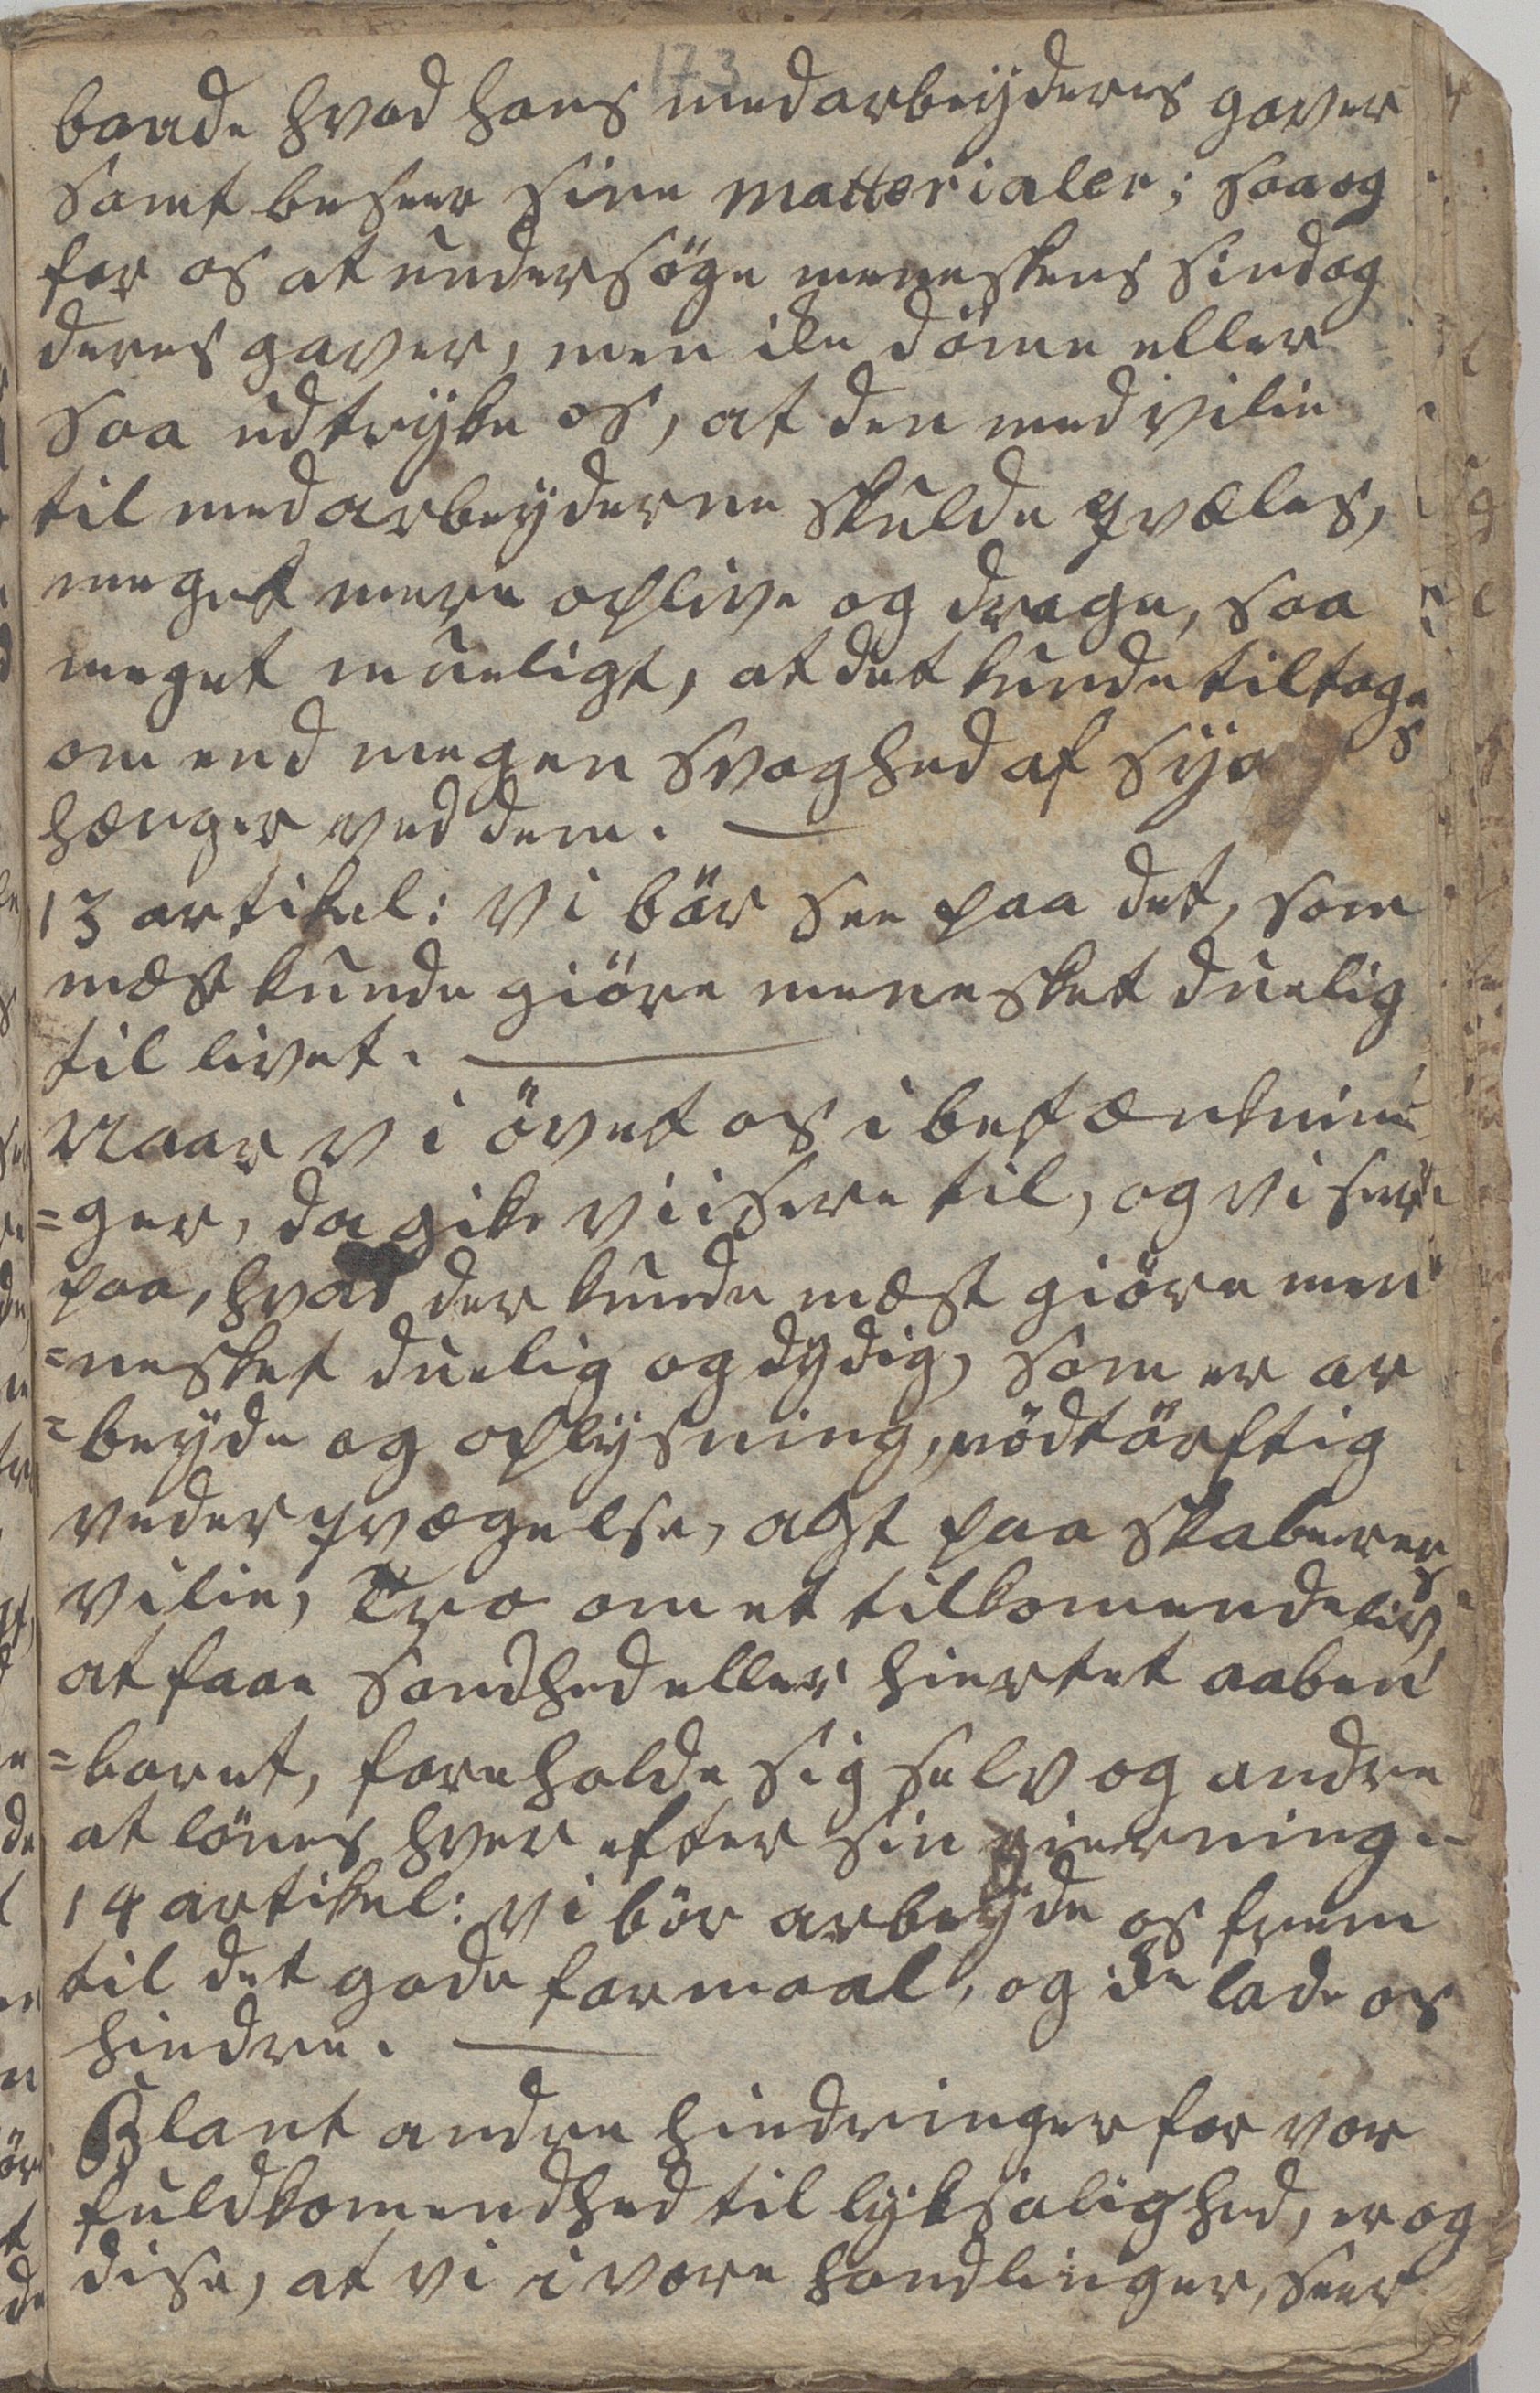 173
baade hvad hans medarbeÿderes gaver
samt beseer sine matterialer; saa og
for os at undersöge meneskens sind og
deres gaver, men ike döme eller
saa udtrÿke os, at den med vilie
til medarbeÿderne skulde qvæles,
meget mere oplive og drage, saa
meget mueligt, at det kunde tiltage
om end megen svaghed af
hænger ved dem.
13 artikel: Vi bör see paa det, som
mæst kunde giöre menesket duelig
til livet.
Naar vi övet os i betænknin
=ger, da gik vi isere til, og vi
paa, hvad der kunde mæst giöre men
=nesket duelig og dydig, som er ar
=beÿde og oplÿsning, nödtörftig
vederqvægelse, agt paa skaberens
vilie, Tro om et tilkomende liv,
at faae sandhed eller hiertet aaben
=baret, foreholde sig selv og andre
at lönes hver efter sin gierning.
14 artikel: Vi bör arbeÿde os frem
til det gode formaal, og ike lade os
hindre.
Blant andre hindringer for vor
fuldkomendhed til lÿksalighed, er og
dise, at vi i vore handlinger, seer